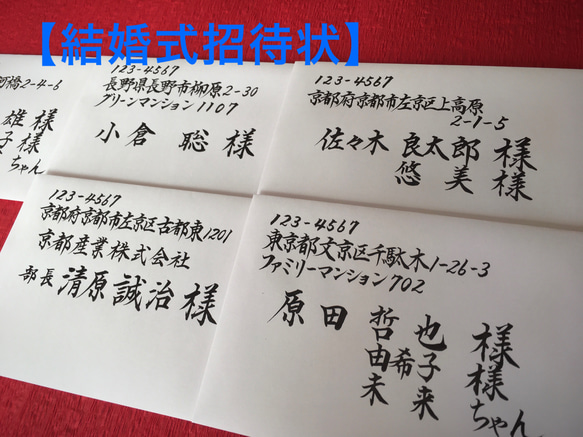 【結婚式招待状】
町橋2-4-6
雄様
子様
ちゃん
123-4567
長野県長野市柳原2-30
グリーンマンション1107
小倉 聡 様
123-4567
京都府京都市左京区上高原
2-1-5
佐々木 良太郎 様
悠美 様
123-4567
京都府京都市左京区古都東1201
京都産業株式会社
部長 清原誠治様
123-4567
東京都文京区千駄木1-26-3
ファミリーマンション702
原田 哲也 様
由希子 様
未来 ちゃん